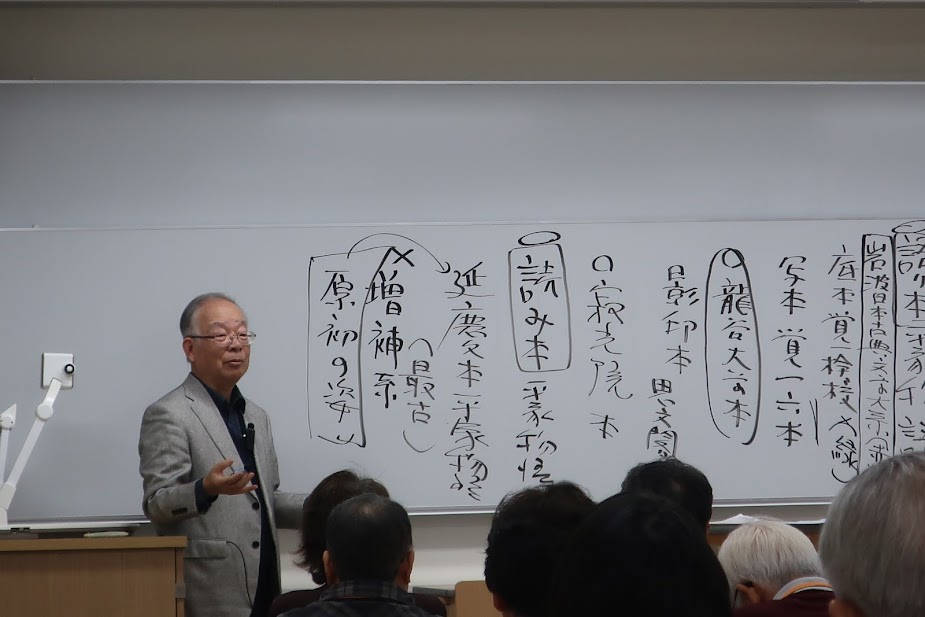 語り本平家物語
岩波日本古典文学大系(赤
底本覚検校(緑)
写本覚一六本
○龍谷大学本
影印本 思文閣
○寂光院本
読み本 平家物語
延慶本平家物語
(最古)
×増補系
原初の姿